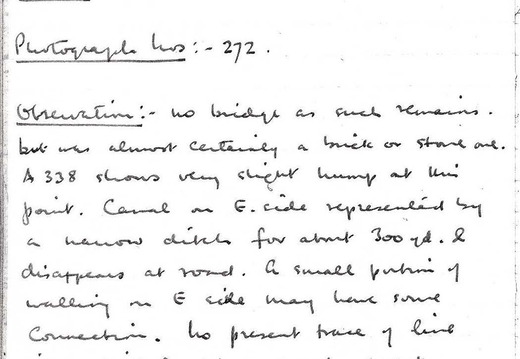 Photograph Nos :- 272.
Observation:- No bridge as such remains.
but was almost certainly a brick or stone one.
A 338 shows very slight hump at this
point. Canal on E. side represented by
a narrow ditch for about 300 yd. &
disappears at road. A small portion of
walling on E side may have some
connection. No present trace of line